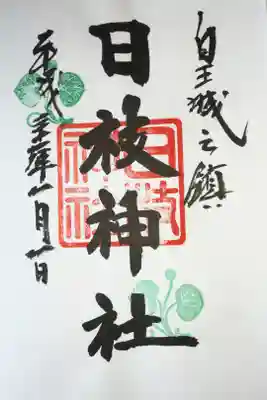 皇城之鎮
日枝神社
平成三十年一月一日
日枝神社